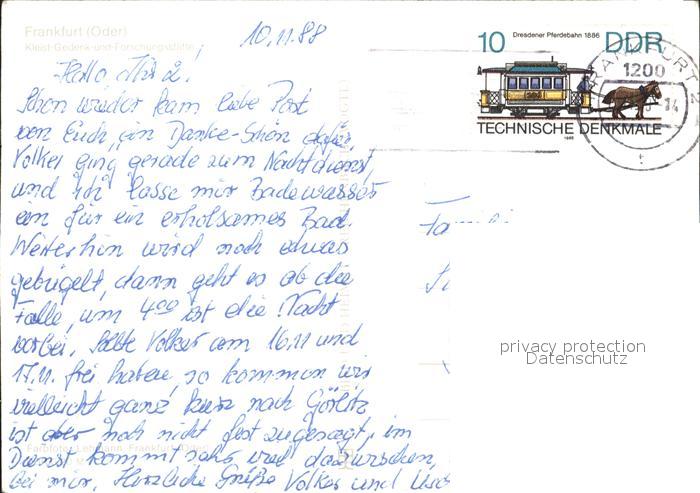 Frankfurt (Oder)
Kleist-Gedenk-und Forschungsstätte
10.11.88
Hallo Ihr 2!
Schon wieder kam liebe Post
von Euch, ein Danke-Schön dafür,
Volker ging gerade zum Nachtdienst,
und ich lasse mir Badewasser
ein für ein erholsames Bad.
Weiterhin wird noch etwas
gebügelt, dann geht es ab die
Falle, um 4.00 ist die Nacht
vorbei. Sollte Volker am 16.11 und
17.11. frei haben, so kommen wir
vielleicht ganz kurz nach Görlitz
ist aber noch nicht fest zugesagt, im
Dienst kommt sehr viel dazwischen,
bei mir. Herzliche Grüße Volker und
10
Dresdener Pferdebahn 1886
DDR
TECHNISCHE DENKMALE
1986
1200
14
Fa
privacy protection
Datenschutz